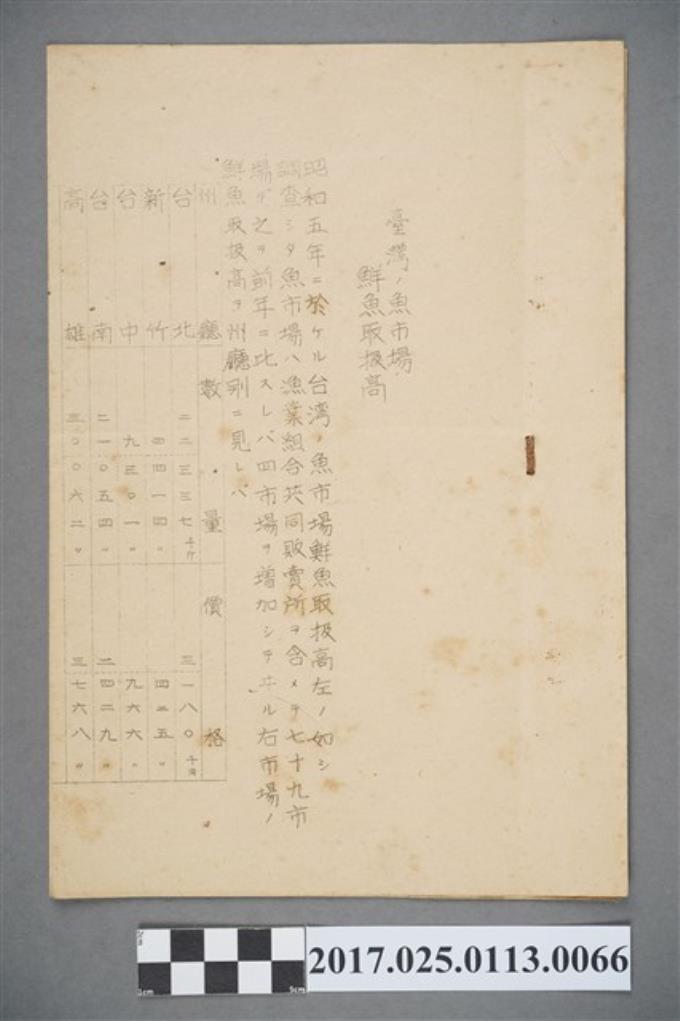 臺灣ノ魚市場
鮮魚取扱高
昭和五年ニ於ケル台湾ノ魚市場鮮魚取扱高左ノ如シ
調査シタ魚市場ハ漁業組合共同販賣所ヲ含メテ七十九市
場デ之ヲ前年ニ比スレバ四市場ヲ増加シテヰル右市場ノ
鮮魚取扱高ヲ州廳別ニ見レバ
州廳 數量 價格
台北 二二三三七千斤 三一八〇千円
新竹 四四一四〃 四二五〃
台中 九三〇一〃 九六六〃
台南 二一〇五四〃 二四二九〃
高雄 三〇〇六二〃 三七六八〃
2017.025.0113.0066